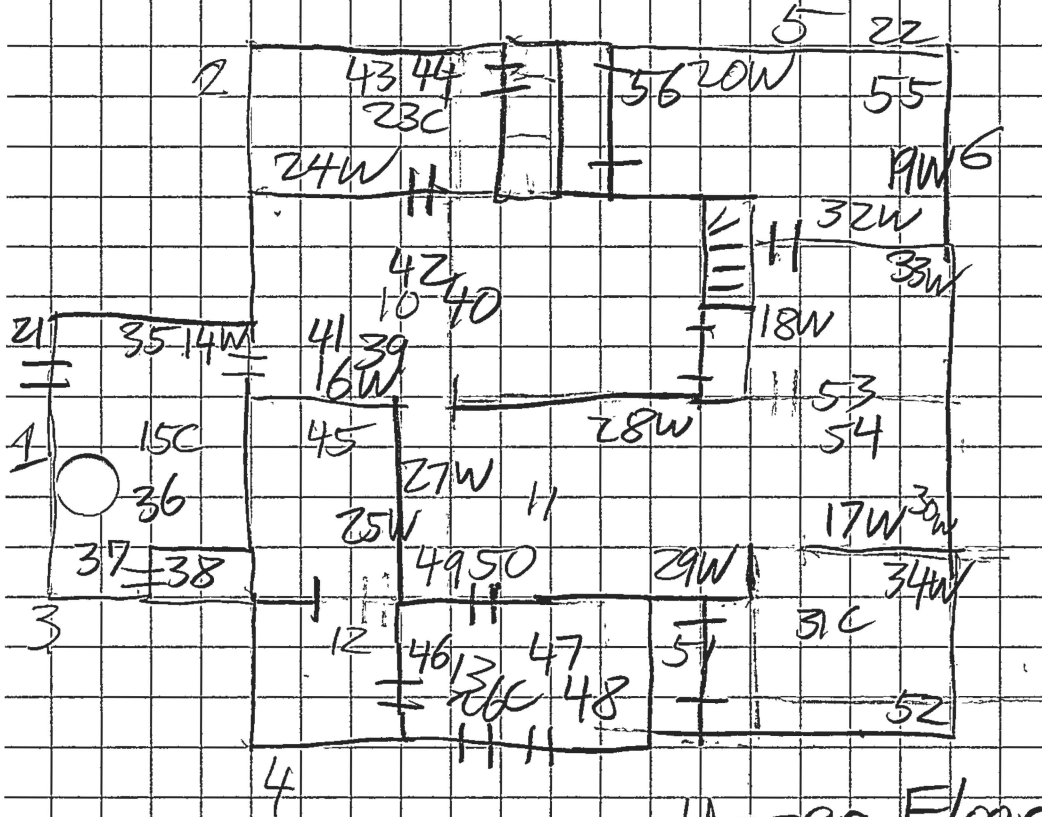 5 22
2 43 44 56 20W 55
23C
24W 19W 6
32W
42 33W
10 40
21 35 14W 41 39 18W
16W 53
1 15C 45 28W 54
27W
36 25W 11 17W 30W
37 38 49 50 29W 34W
3 31C
12 46 13 47 51
26C 48 52
4